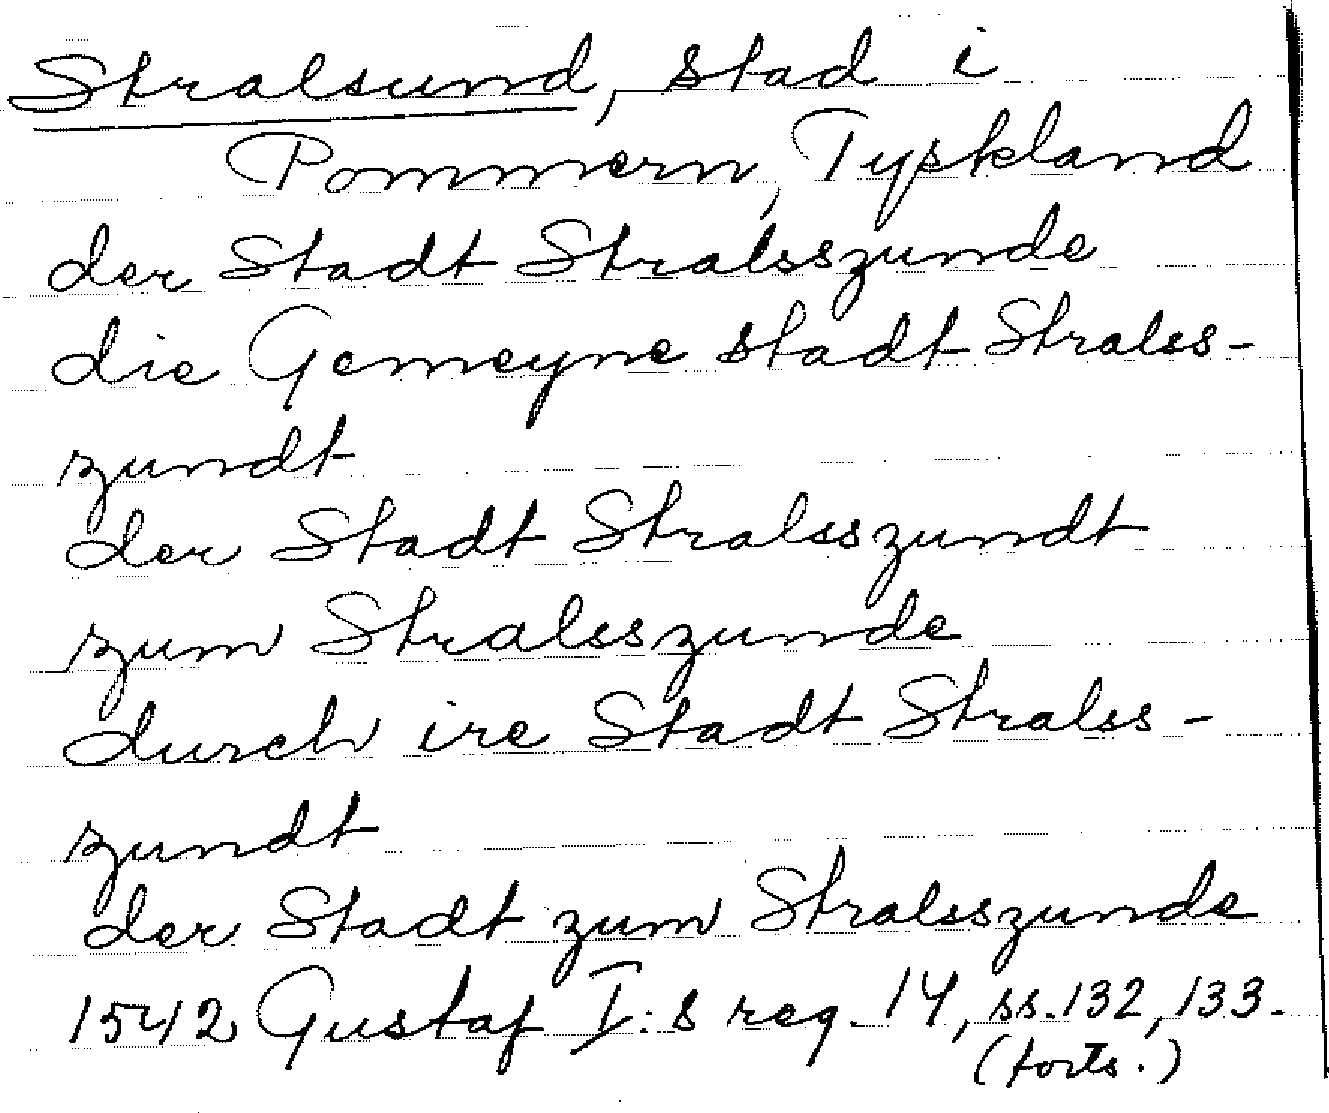 Stralsund, stad i
Pommern, Tyskland
der Stadt Stralsszunde
die Gemeyne stadt Stralss-
zundt
der Stadt Stralsszundt
zum Stralsszunde
durch ire Stadt Stralss-
zundt
der Stadt zum Stralsszunde
1542 Gustaf I:s reg. 14, ss. 132, 133.
(forts.)